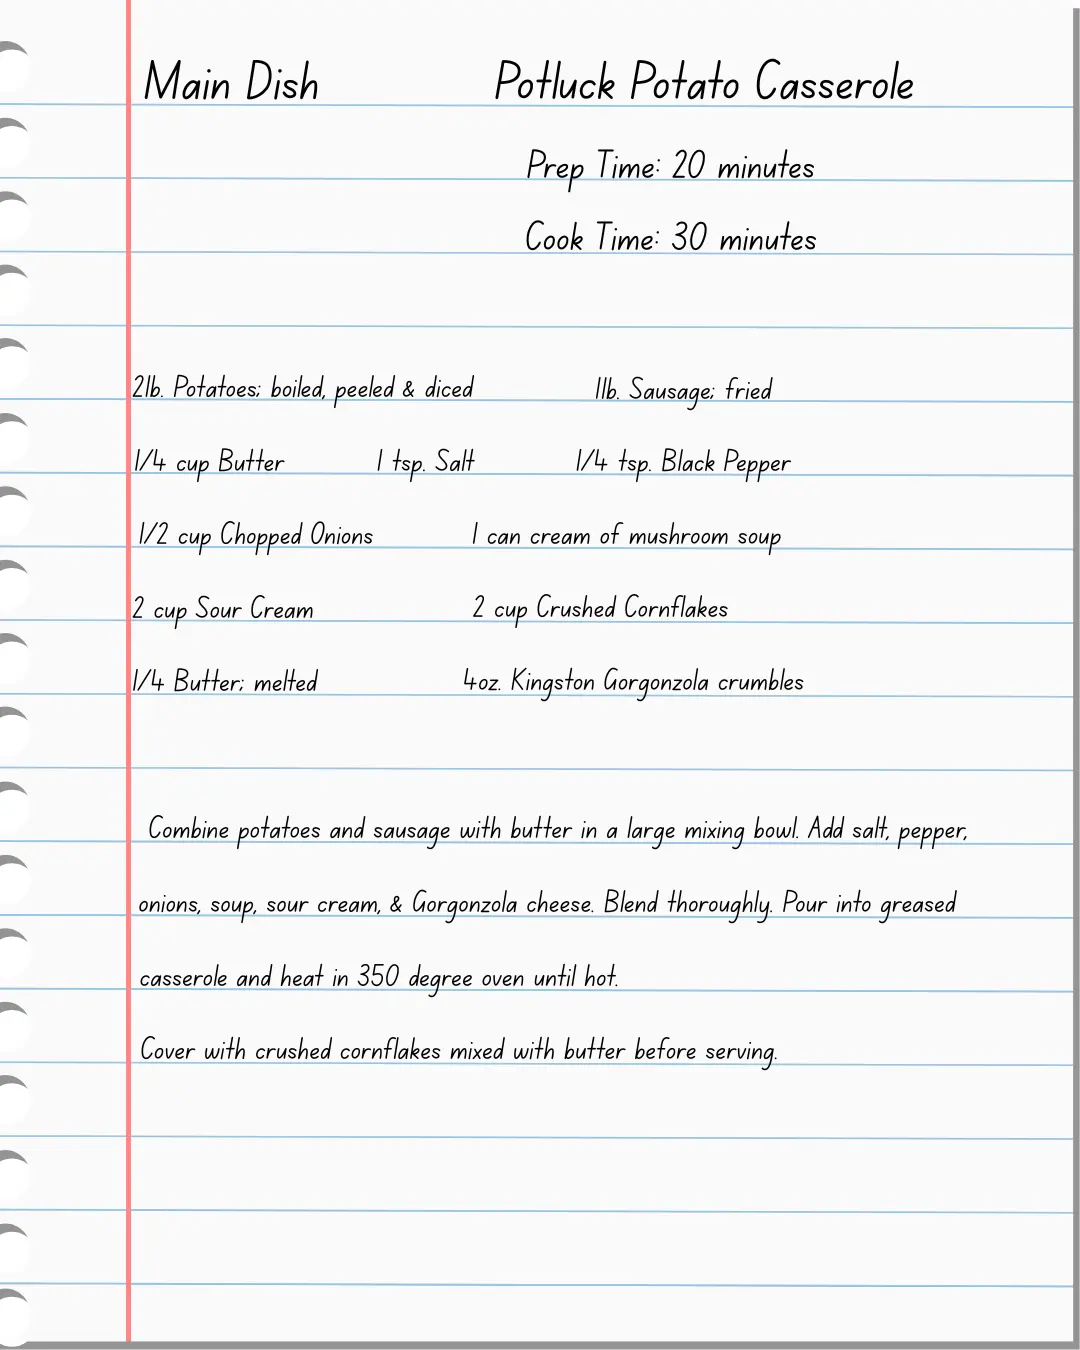 Main Dish Potluck Potato Casserole
Prep Time: 20 minutes
Cook Time: 30 minutes
2lb. Potatoes; boiled, peeled & diced 1lb. Sausage; fried
1/4 cup Butter 1 tsp. Salt 1/4 tsp. Black Pepper
1/2 cup Chopped Onions 1 can cream of mushroom soup
2 cup Sour Cream 2 cup Crushed Cornflakes
1/4 Butter; melted 4oz. Kingston Gorgonzola crumbles
Combine potatoes and sausage with butter in a large mixing bowl. Add salt, pepper,
onions, soup, sour cream, & Gorgonzola cheese. Blend thoroughly. Pour into greased
casserole and heat in 350 degree oven until hot.
Cover with crushed cornflakes mixed with butter before serving.